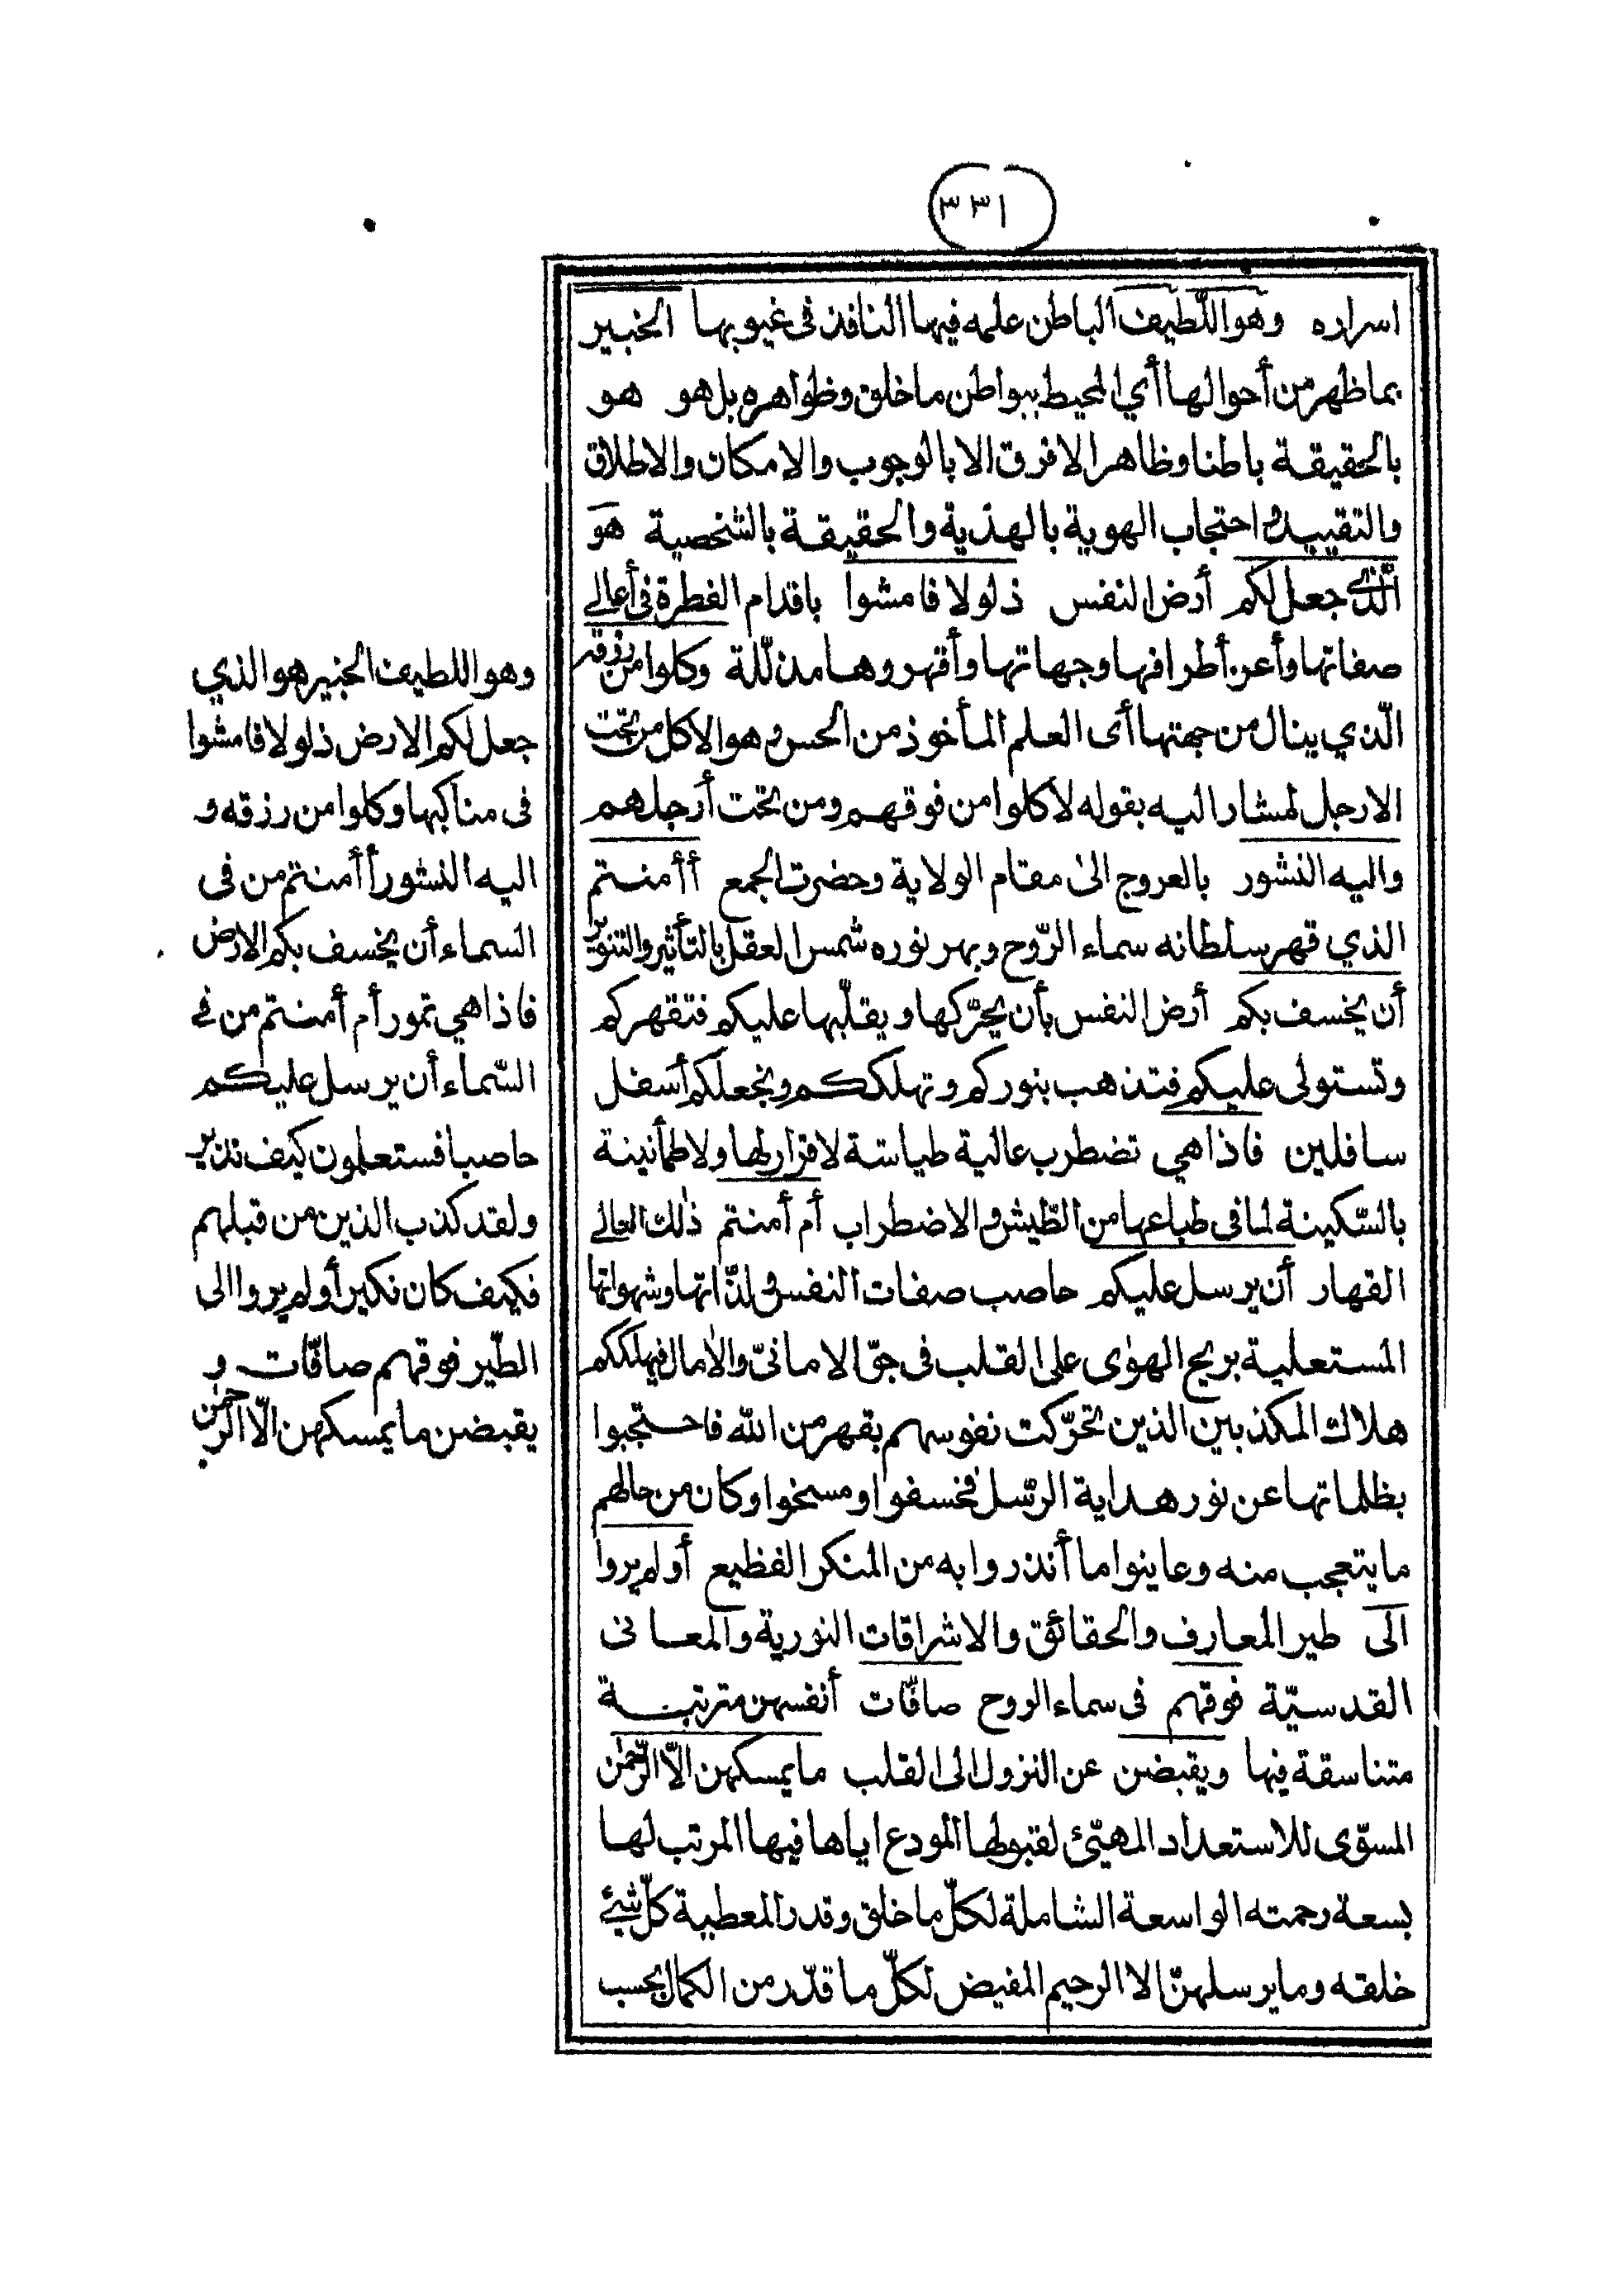 ٣٣١
اسراره وهو اللّطيف الباطن علمه فيها النافذ فى غيوبها الخبير
بما ظهر من أحوالها أي المحيط ببواطن ما خلق وظواهره بل هو هو
بالحقيقة باطنا وظاهرا لا فرق الا بالوجوب والامكان والاطلاق
والتقييد و احتجاب الهوية بالهذية والحقيقة بالشخصية هو
الّذي جعل لكم أرض النفس ذلولا فامشوا باقدام الفطرة فى أعالى
صفاتها وأعن أطرافها وجهاتها وأقهروها مذلّلة وكلوا من رزقه
الّذي ينال من جهتها أى العلم المأخوذ من الحس وهو الاكل من تحت
الارجل لمشار اليه بقوله لاكلوا من فوقهم ومن تحت أرجلهم
واليه النشور بالعروج الىٰ مقام الولاية وحضرت الجمع أأمنتم
الذي قهر سلطانه سماء الرّوح وبهر نوره شمس العقل بالتأثير والتنوير
أن يخسف بكم أرض النفس بأن يحرّكها ويقلّبها عليكم فتقهركم
وتستولى عليكم فتذهب بنوركم وتهلككم ونجعلكم أسفل
سافلين فاذا هي تضطرب عالية طياشة لا قرار لها ولا طمأنينة
بالسّكينة لما فى طباعها من الطّيش والاضطراب أم أمنتم ذٰلك العالى
القهار أن يرسل عليكم حاصب صفات النفس فى لذّاتها وشهواتها
المستعلية بريح الهوٰى على القلب فى جوّ الامانىّ والاٰمال فيهلككم
هلاك المكذبين الذين تحرّكت نفوسهم بقهر من اللّٰه فاحتجبوا
بظلماتها عن نور هداية الرّسل فخسفوا ومسخوا وكان من حالهم
ما يتعجب منه وعاينوا ما أنذروا به من المنكر الفظيع أولم يروا
الى طير المعارف والحقائق والاشراقات النورية والمعانى
القدسيّة فوقهم فى سماء الروح صافّات أنفسهن مترتبة
متناسقة فيها ويقبضن عن النزول الى القلب ما يمسكهن الاّ الرّحمٰن
المسوّى للاستعداد المهيّئ لقبولها المودع اياها فيها المرتب لها
بسعة رحمته الواسعة الشاملة لكلّ ما خلق وقدر المعطية كلّ شئ
خلقه وما يرسلهنّ الا الرحيم المفيض لكلّ ما قدّر من الكمال بحسب
وهو اللطيف الخبير هو الذي
جعل لكم الارض ذلولا فامشوا
فى مناكبها وكلوا من رزقه و
اليه النشور أأمنتم من فى
السماء أن يخسف بكم الارض
فاذا هي تمور أم أمنتم من فى
السّماء أن يرسل عليكم
حاصبا فستعلمون كيف نذير
ولقد كذب الذين من قبلهم
فكيف كان نكير أولم يروا الى
الطّير فوقهم صافّات و
يقبضن ما يمسكهن الاّ الرحمٰن